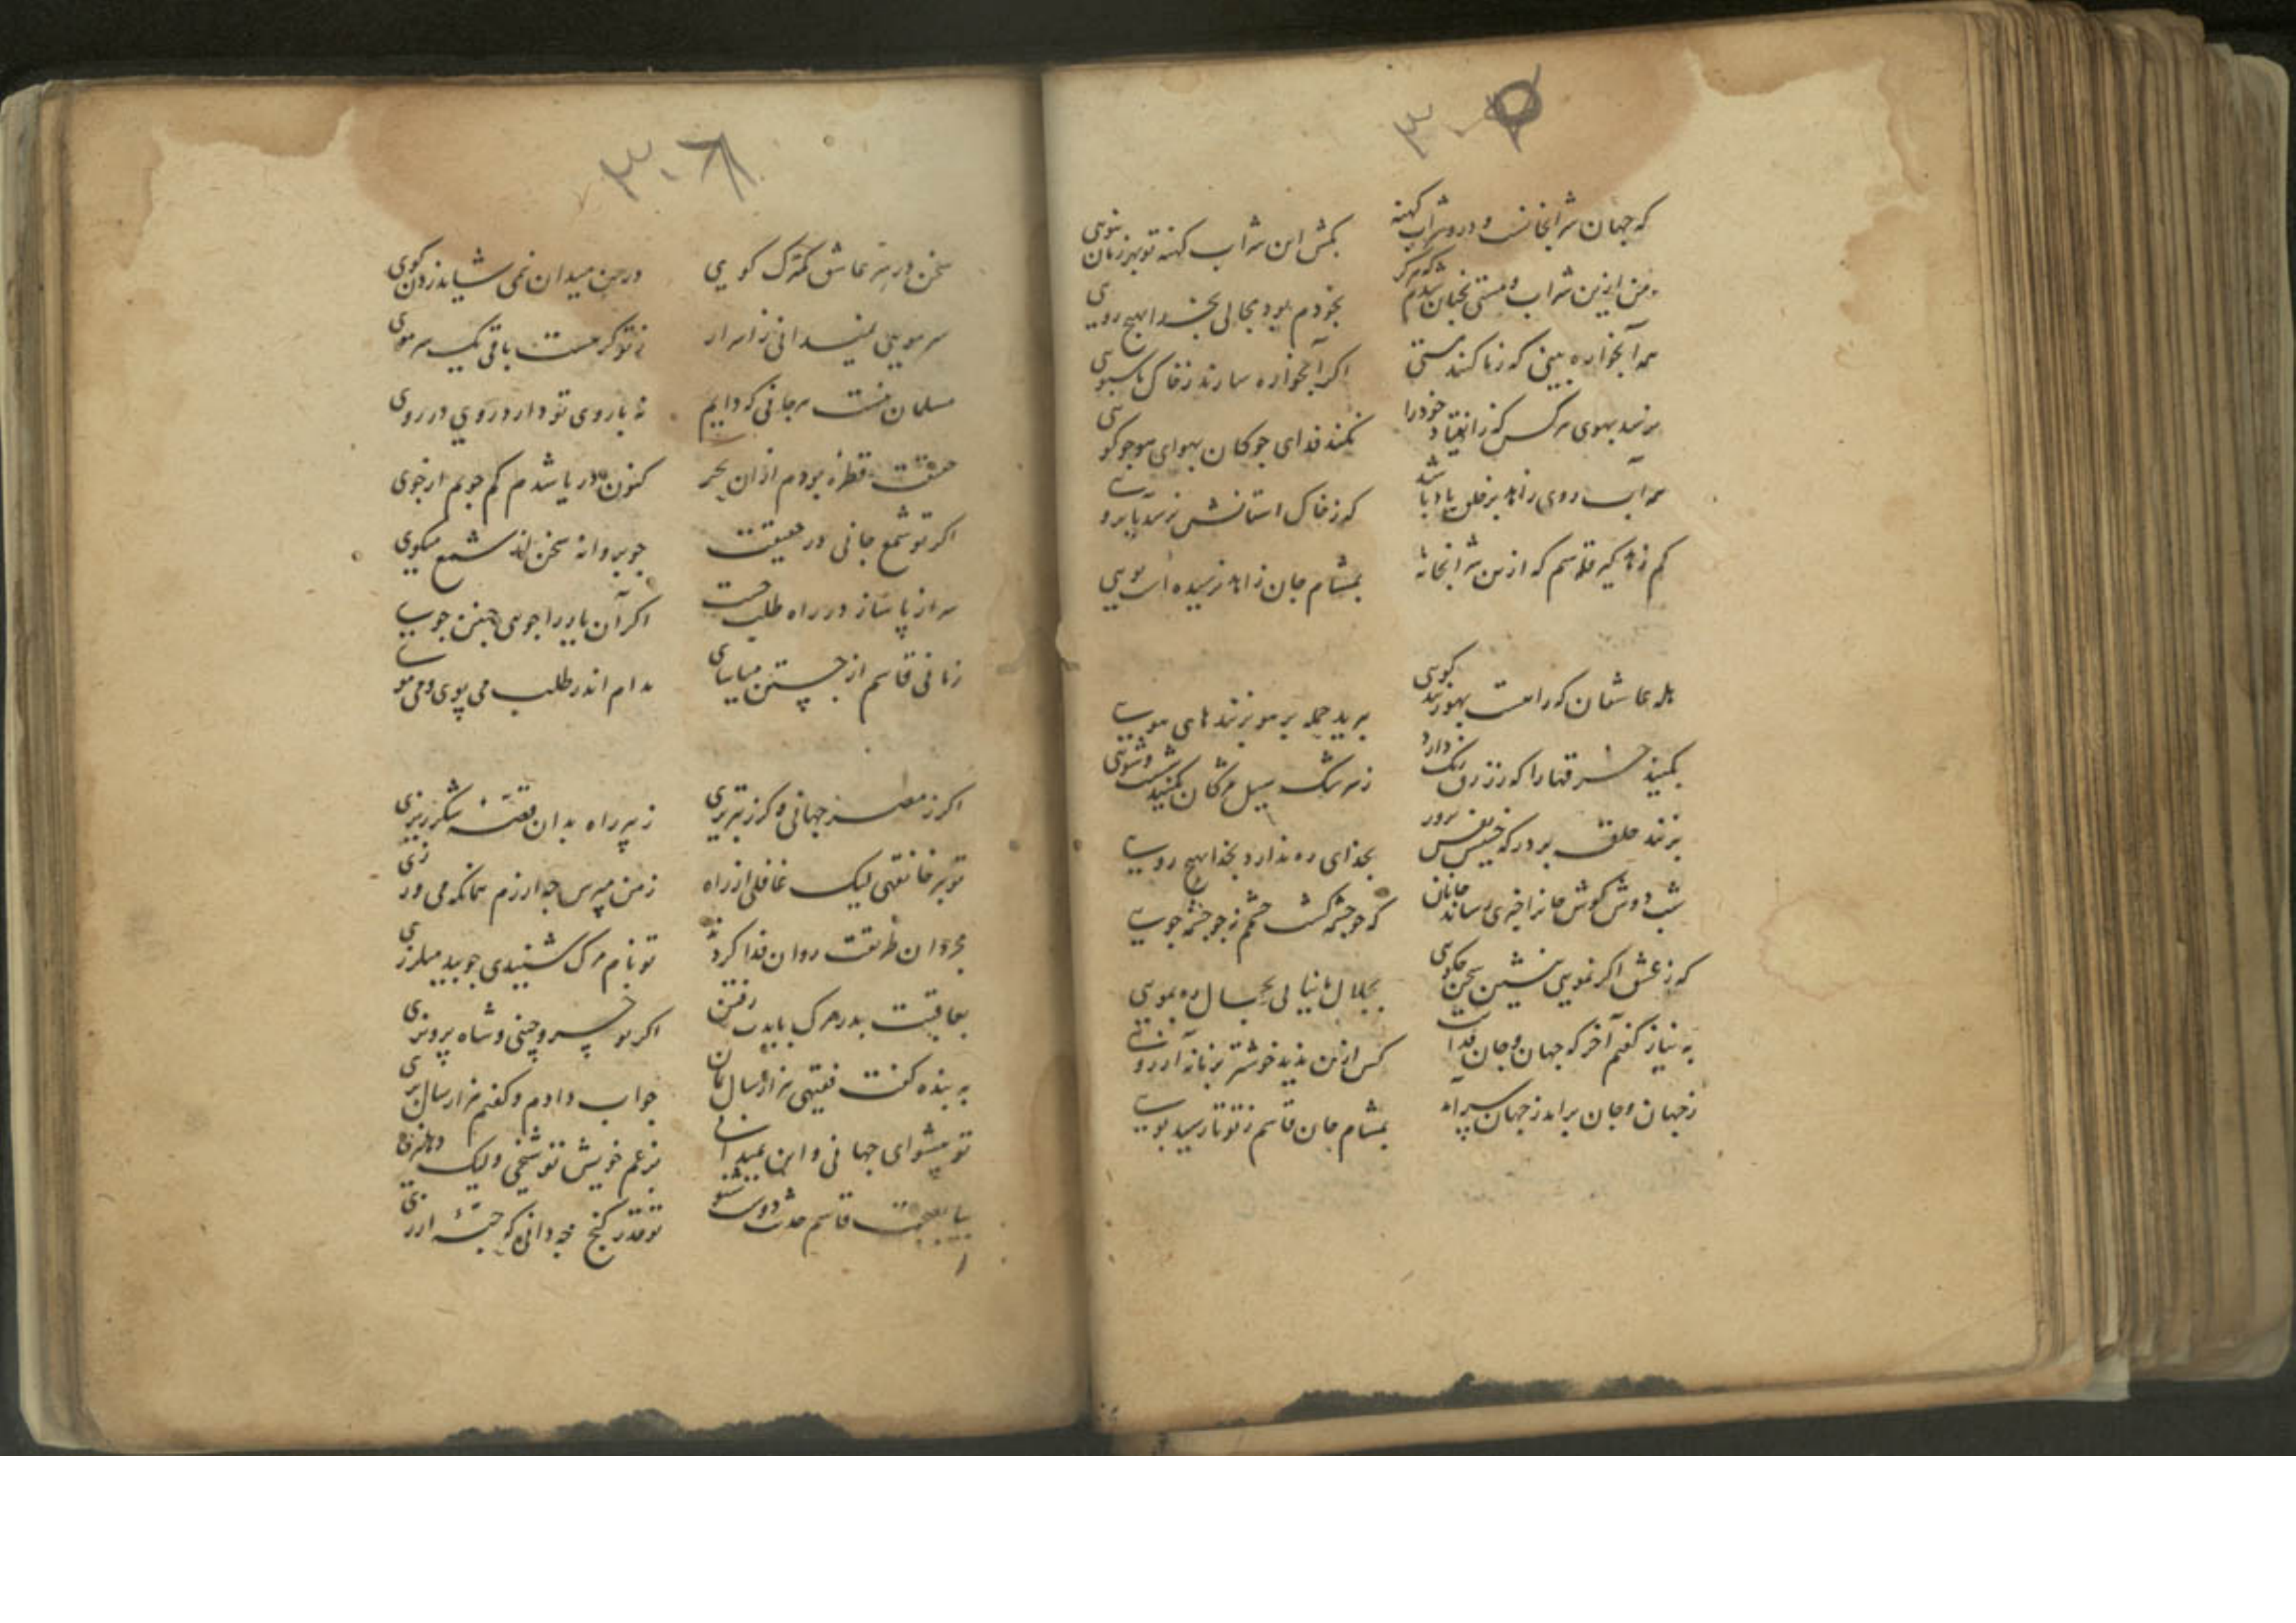 که جهان شرابخانست و درو شراب کهنه
بکش این شراب کهنه تو بهر زمان بنوشی
من ازین شراب و مستی نچنان شدم که هرگز
بخودم بود مجالی بخدا بهیچ رویی
همه آبخواره بینی که زما کنند مستی
اگر آبخواره سازند زخاک ما سبویی
برسد بهوی هر کس که ز خودرا
نکند فدای چوکان بهوای همچو کویی
همه آب روی زاهد بر خلق باد باشد
که زخاک استانش نرسد بابرویی
کم زاهد گیر قاسم که ازین شرابخانه
بمشام جان زاهد نرسیده است بویی
هله عاشقان که رامست بهو زنید کویی
برید جمله بر هو بزنید های هویی
بکنید خرقها را که ز زرق رنگ دارد
زسرشک سیل مژکان بکنید شست و شویی
بزنند حلقه بر در که خسیس نفس پرور
بخدای ره ندارد بخدا بهیچ رویی
شب دوش کوش جانرا خبری رساند جانان
که چو چشمه کشت چشمم زجو چشمه جویی
که زعشق اگر نمویی بنشین سخن مکویی
بجلال ما نیابی بخیال ره بمویی
به نیاز گفتم آخر که جهان و جان فدایت
کس ازین ندید خوشتر بزمانه آرزویی
زجهان و جان برامد زجهان سرآمد
بمشام جان قاسم ز تو تا رسید بویی
۳۰۸
سخن در سر عاشق کمترک کویی
درین میدان نمی شاید زدن کوی
سر مویی نمیدانی ز اسرار
زتو کر هست باقی یک سر موی
مسلمان نیست هر جانی که دایم
نه با روی تو دارد روی در روی
حقیقت قطره بودم ازان بحر
کنون دریا شدم کم جویم از جوی
اگر تو شمع جانی در حقیقت
چو پروانه سخن از شمع میکوی
سر از پا ساز در راه طلب چست
اگر آن یار را جویی چنین جوی
زمانی قاسم از جستن میاسای
مدام اندر طلب می پوی و می موی
اگر زمصر جهانی و گر ز تبریزی
زپیر راه بدان قصه شکرریزی
تو پیر خانقهی لیک غافلی از راه
زمن مپرس چه ارزم همانکه می ورزی
مجردان طریقت روان فدا کردند
تو نام مرگ شنیدی چو بید میلرزی
بعاقبت بدر مرگ باید رفتن
اگر تو خسرو چینی و شاه پرویزی
به بنده گفت فقیهی هزار سال بمان
جواب دادم و گفتم هزار سال بزی
تو پیشوای جهانی و این نمیدانی
بزعم خویش تو شیخی ولیک
بیا بصحبت قاسم حدیث دوست شنو
تو قدر گنج چه دانی که حبه ارزی